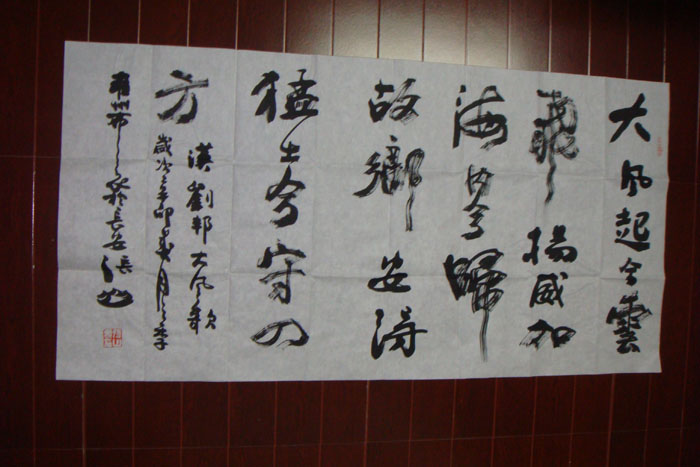 大風起兮雲
飛揚威加
海内兮歸
故鄉安得
猛士兮守四
方
漢劉邦大風歌
歲次辛卯月之季
州布長安張